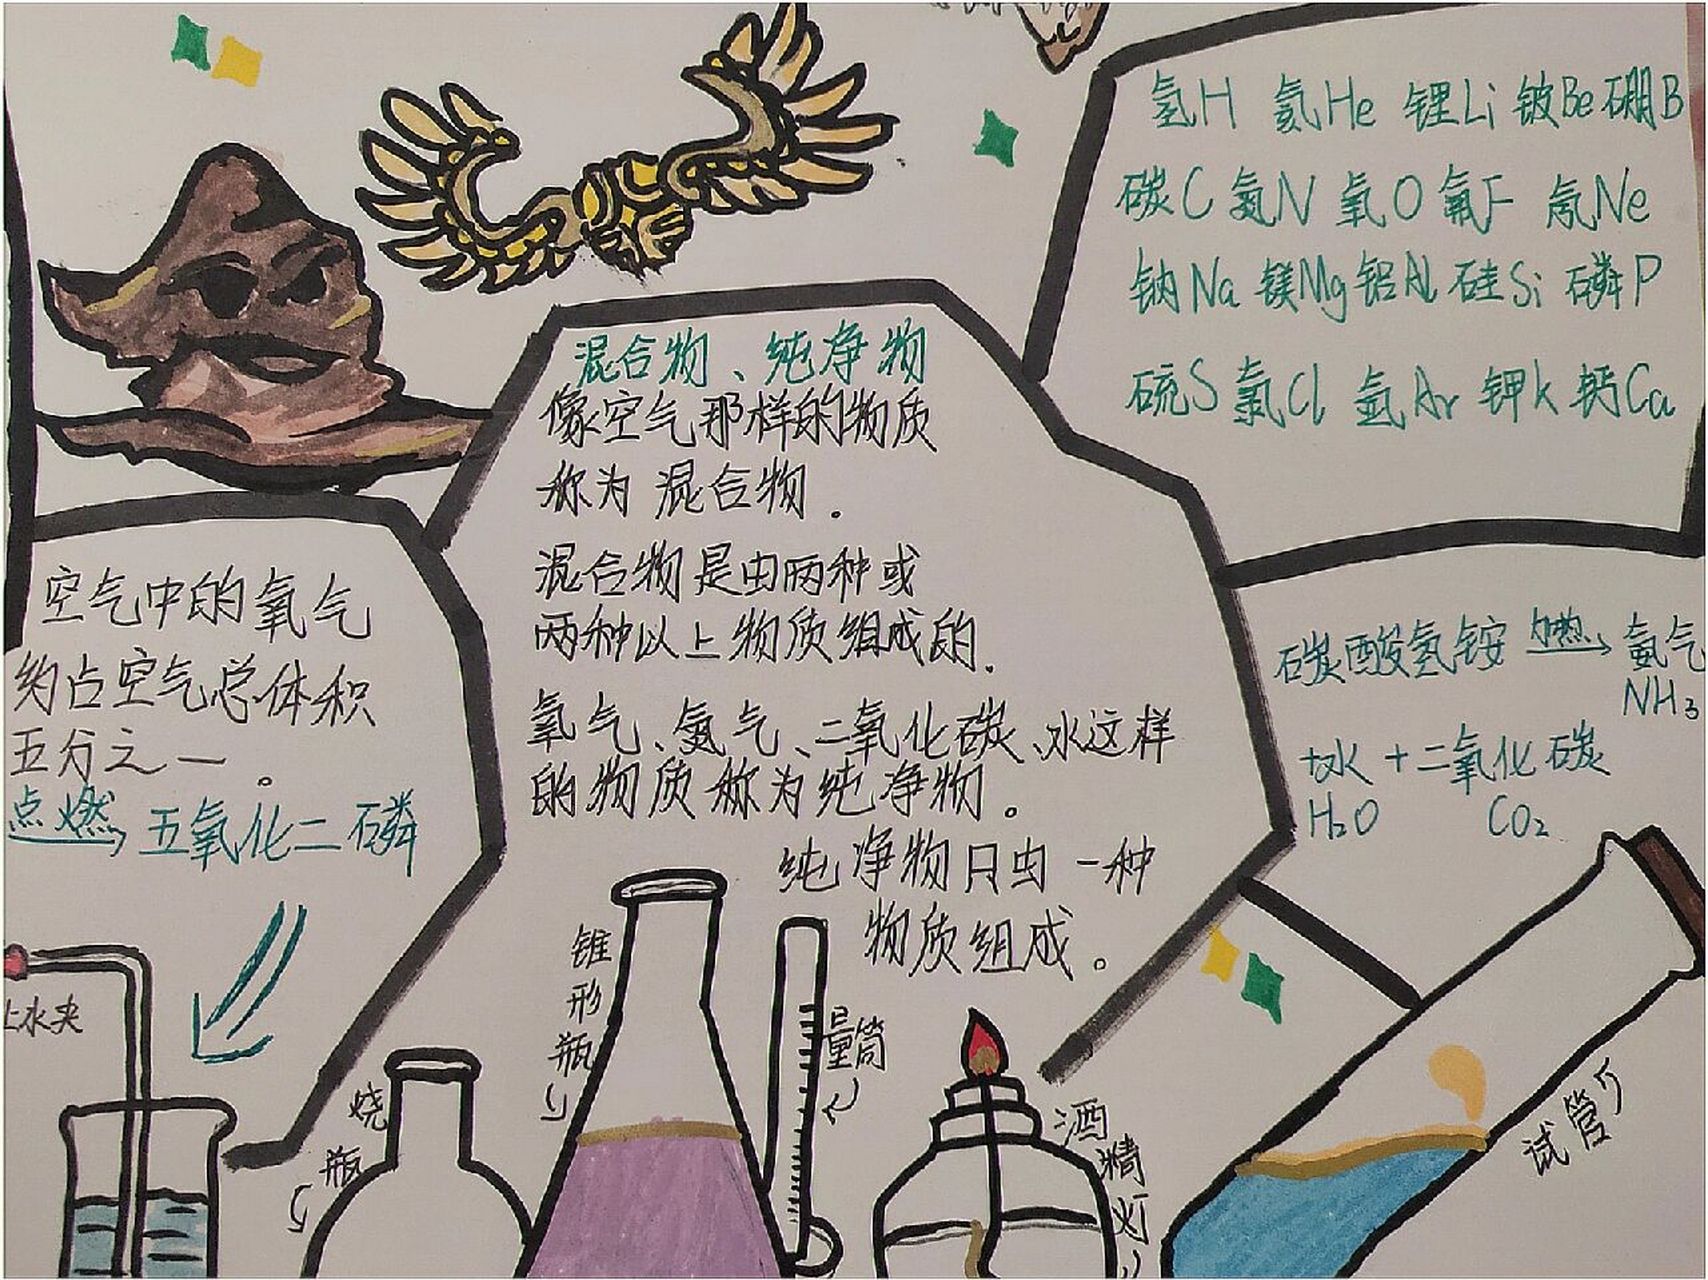 氢H 氦He 锂Li 铍Be 硼B
碳C 氮N 氧O 氟F 氖Ne
钠Na 镁Mg 铝Al 硅Si 磷P
硫S 氯Cl 氩Ar 钾K 钙Ca
混合物、纯净物
像空气那样的物质
称为混合物.
混合物是由两种或
两种以上物质组成的.
氧气、氮气、二氧化碳、水这样
的物质称为纯净物。
纯净物只由一种
物质组成。
空气中的氧气
约占空气总体积
五分之一。
点燃→五氧化二磷
碳酸氢铵 →氨气
NH₃
+水+二氧化碳
H₂O CO₂
止水夹
烧瓶
锥形瓶
量筒
酒精灯
试管